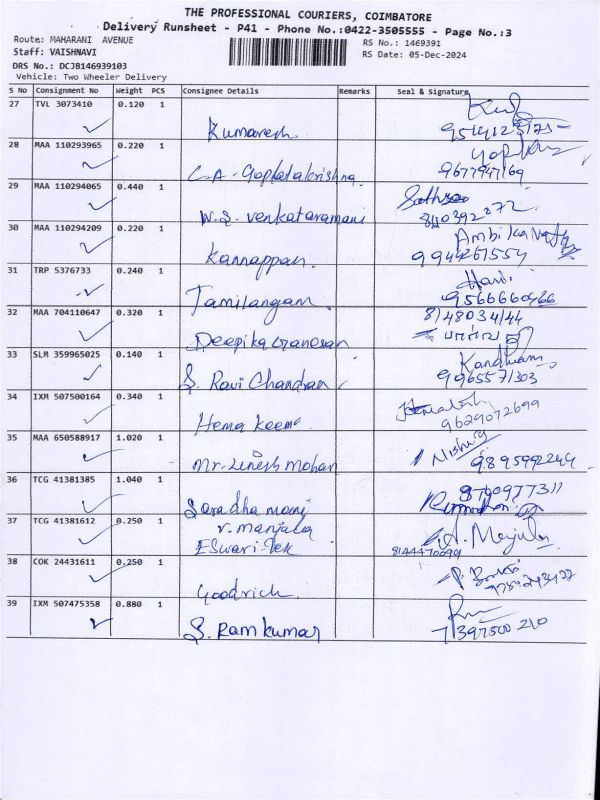 THE PROFESSIONAL COURIERS, COIMBATORE
Delivery Runsheet - P41 - Phone No.:0422-3505555 - Page No.:3
Route: MAHARANI AVENUE
RS No.: 1469391
Staff: VAISHNAVI
RS Date: 05-Dec-2024
DRS No.: DCJB146939103
Vehicle: Two Wheeler Delivery
S No Consignment No Weight PCS Consignee Details Remarks Seal & Signature
27 TVL 3073410 0.120 1
Kumaresh
28 MAA 110293965 0.220 1
C.A - Gopalakrishna
9677947169
29 MAA 110294065 0.440 1
W.S. Venkataramani
30 MAA 110294209 0.220 1
Kannappan. 994261554
31 TRP 5376733 0.240 1
Hari.
Tamilangam 9566660466
32 MAA 704110647 0.320 1 8148034144
Deepika Ganesan
33 SLM 359965025 0.140 1
S. Ravi Chandran 9965571303
34 IXM 507500164 0.340 1
Hema Keeme 9629072699
35 MAA 650588917 1.020 1
Mr. Linesh Mohan 9895992244
36 TCG 41381385 1.040 1 8760977311
Saradha mani
37 TCG 41381612 0.250 1 V. Manjula
A. Manjula
Eswari
38 COK 24431611 0.250 1
Goodrich.
39 IXM 507475358 0.880 1
S. Ramkumar 7397500210